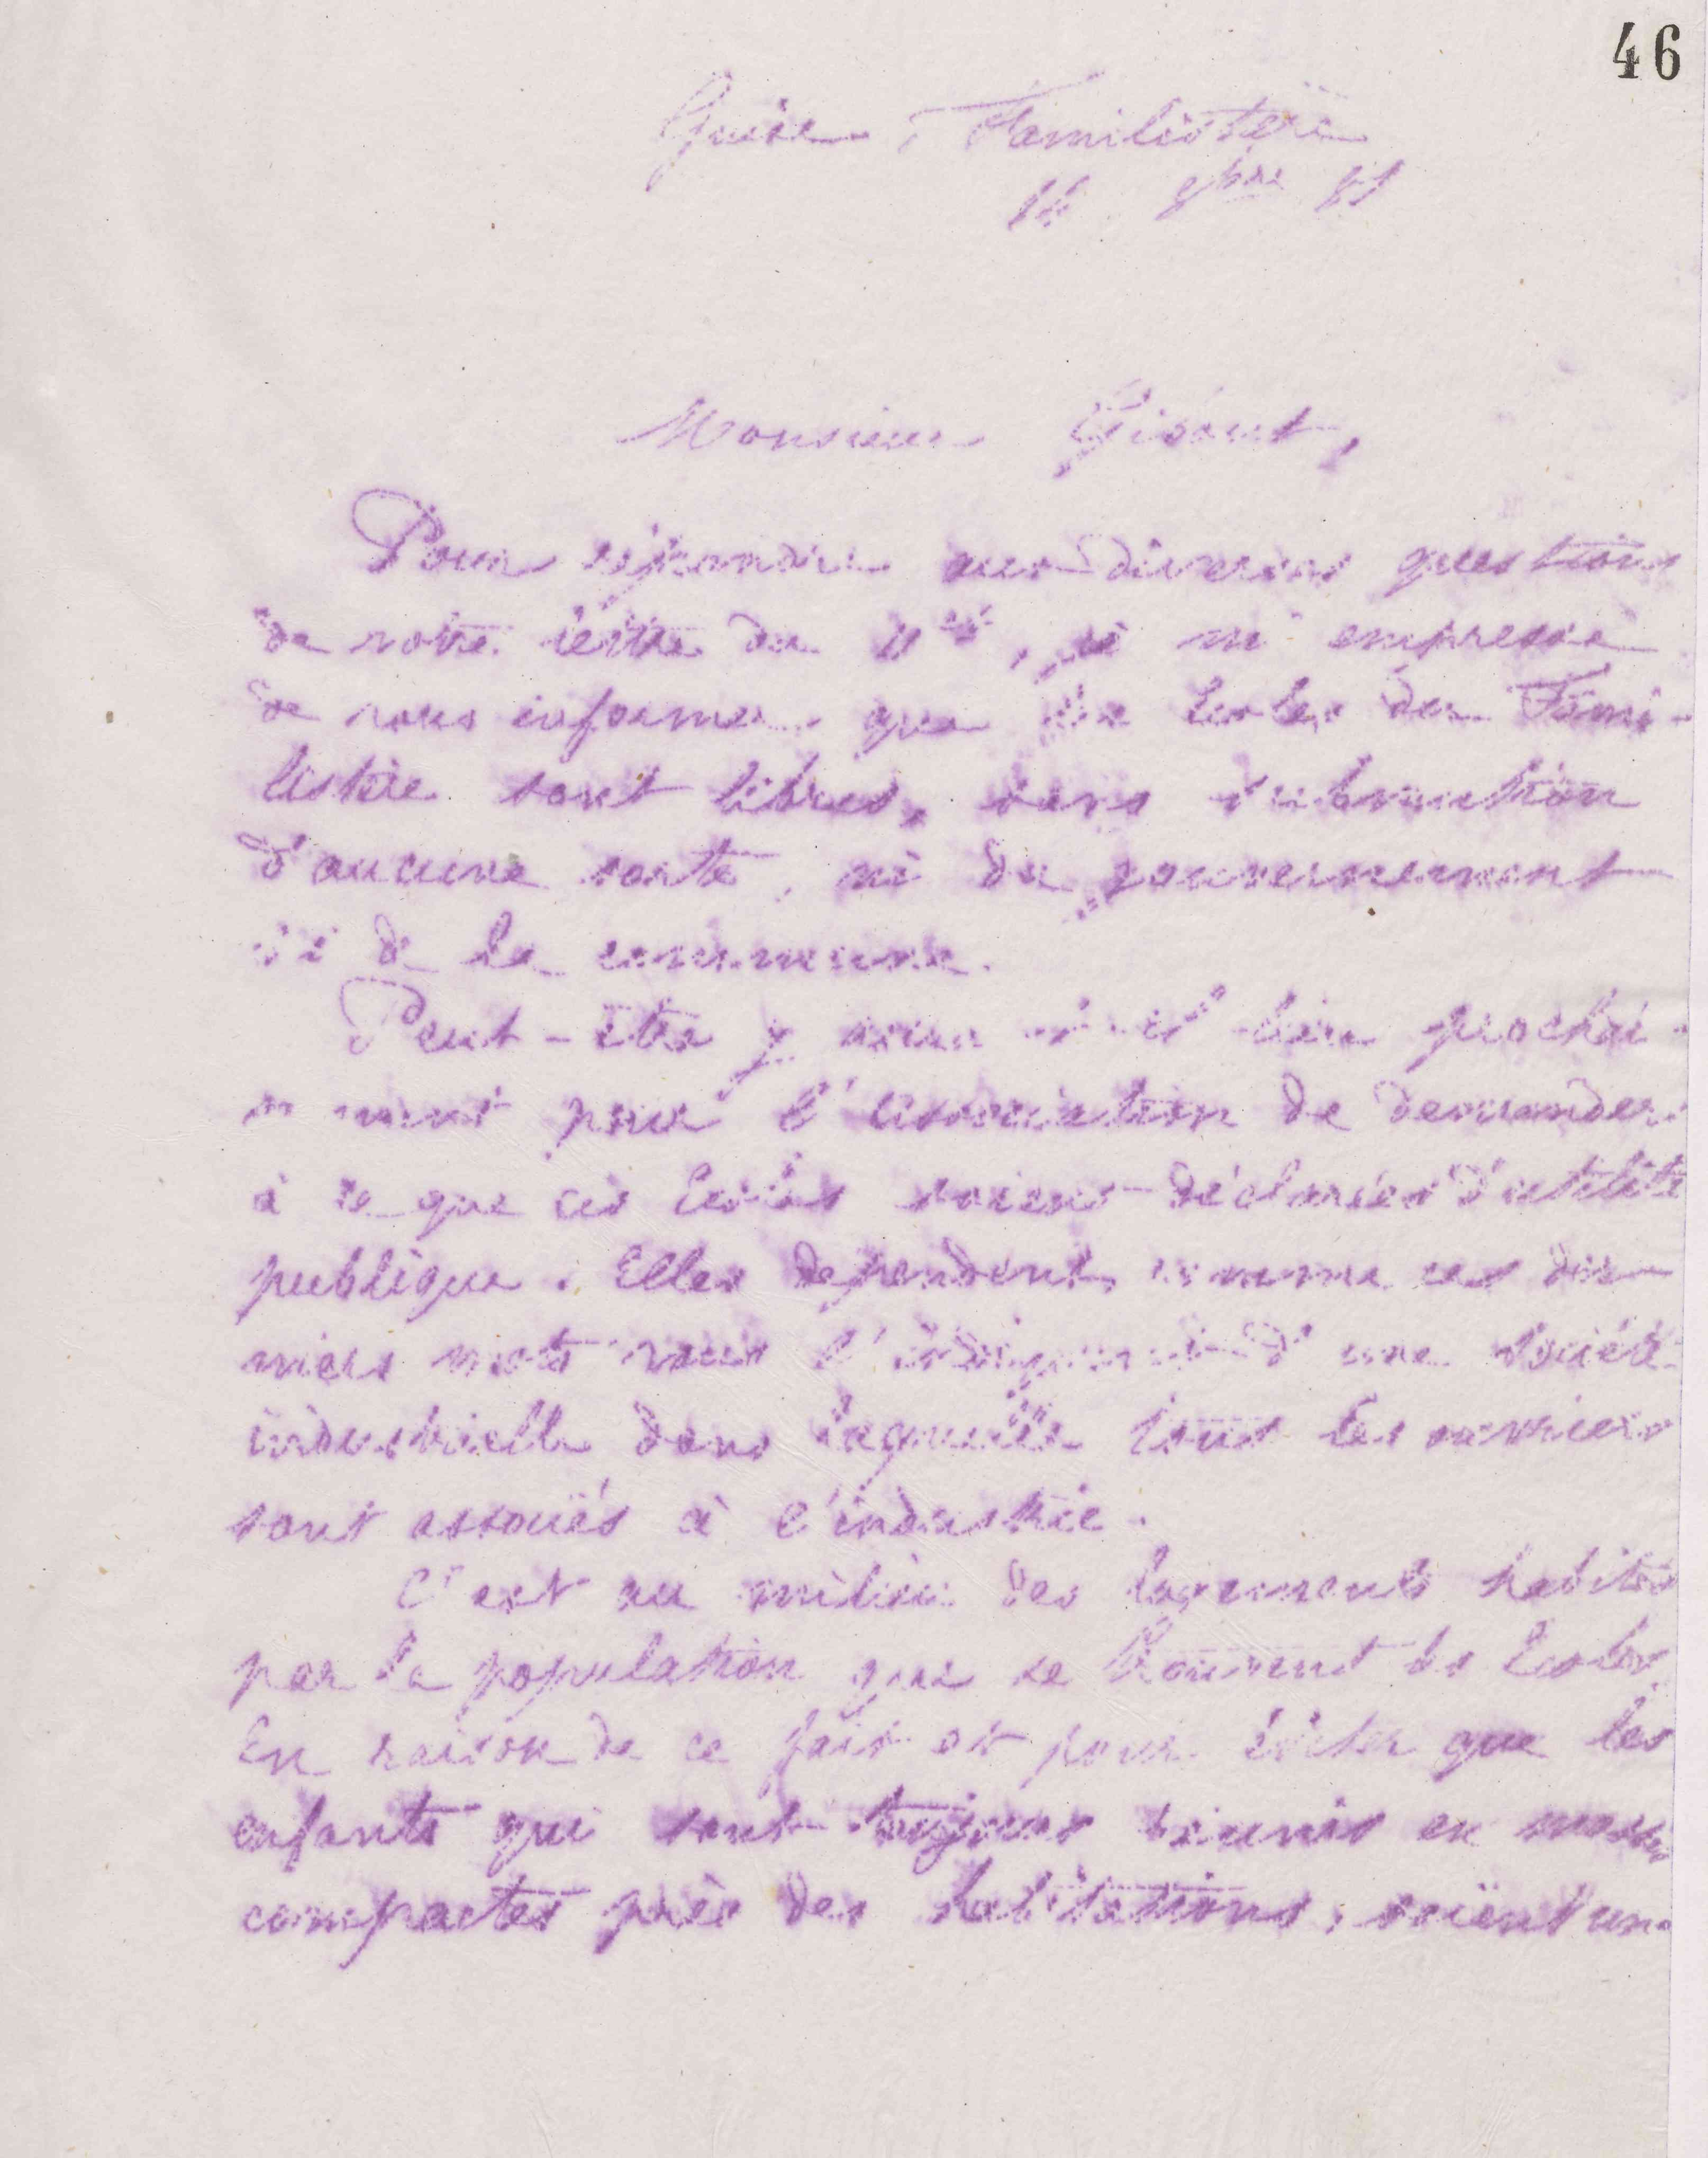 46
Guise, Familistère
9bre 81
Monsieur
Pour répondre aux diverses questions
de votre lettre du 11 ct, je m'empresse
de vous informer que les Ecoles du Fami-
listère sont libres, sans subvention
d'aucune sorte, ni du gouvernement
ni de la commune.
Peut-être y aura-t-il lieu prochai-
nement pour l'association de demander
à ce que ces Ecoles soient déclarées d'utilité
publique. Elles dépendent, comme ces der-
niers mots vous l'indiquent d'une société
industrielle dans laquelle tous les ouvriers
sont associés à l'industrie.
C'est au milieu des logements habités
par la population que se trouvent les Ecoles
En raison de ce fait et pour éviter que les
enfants qui sont toujours réunis en masses
compactes près des habitations, soient une